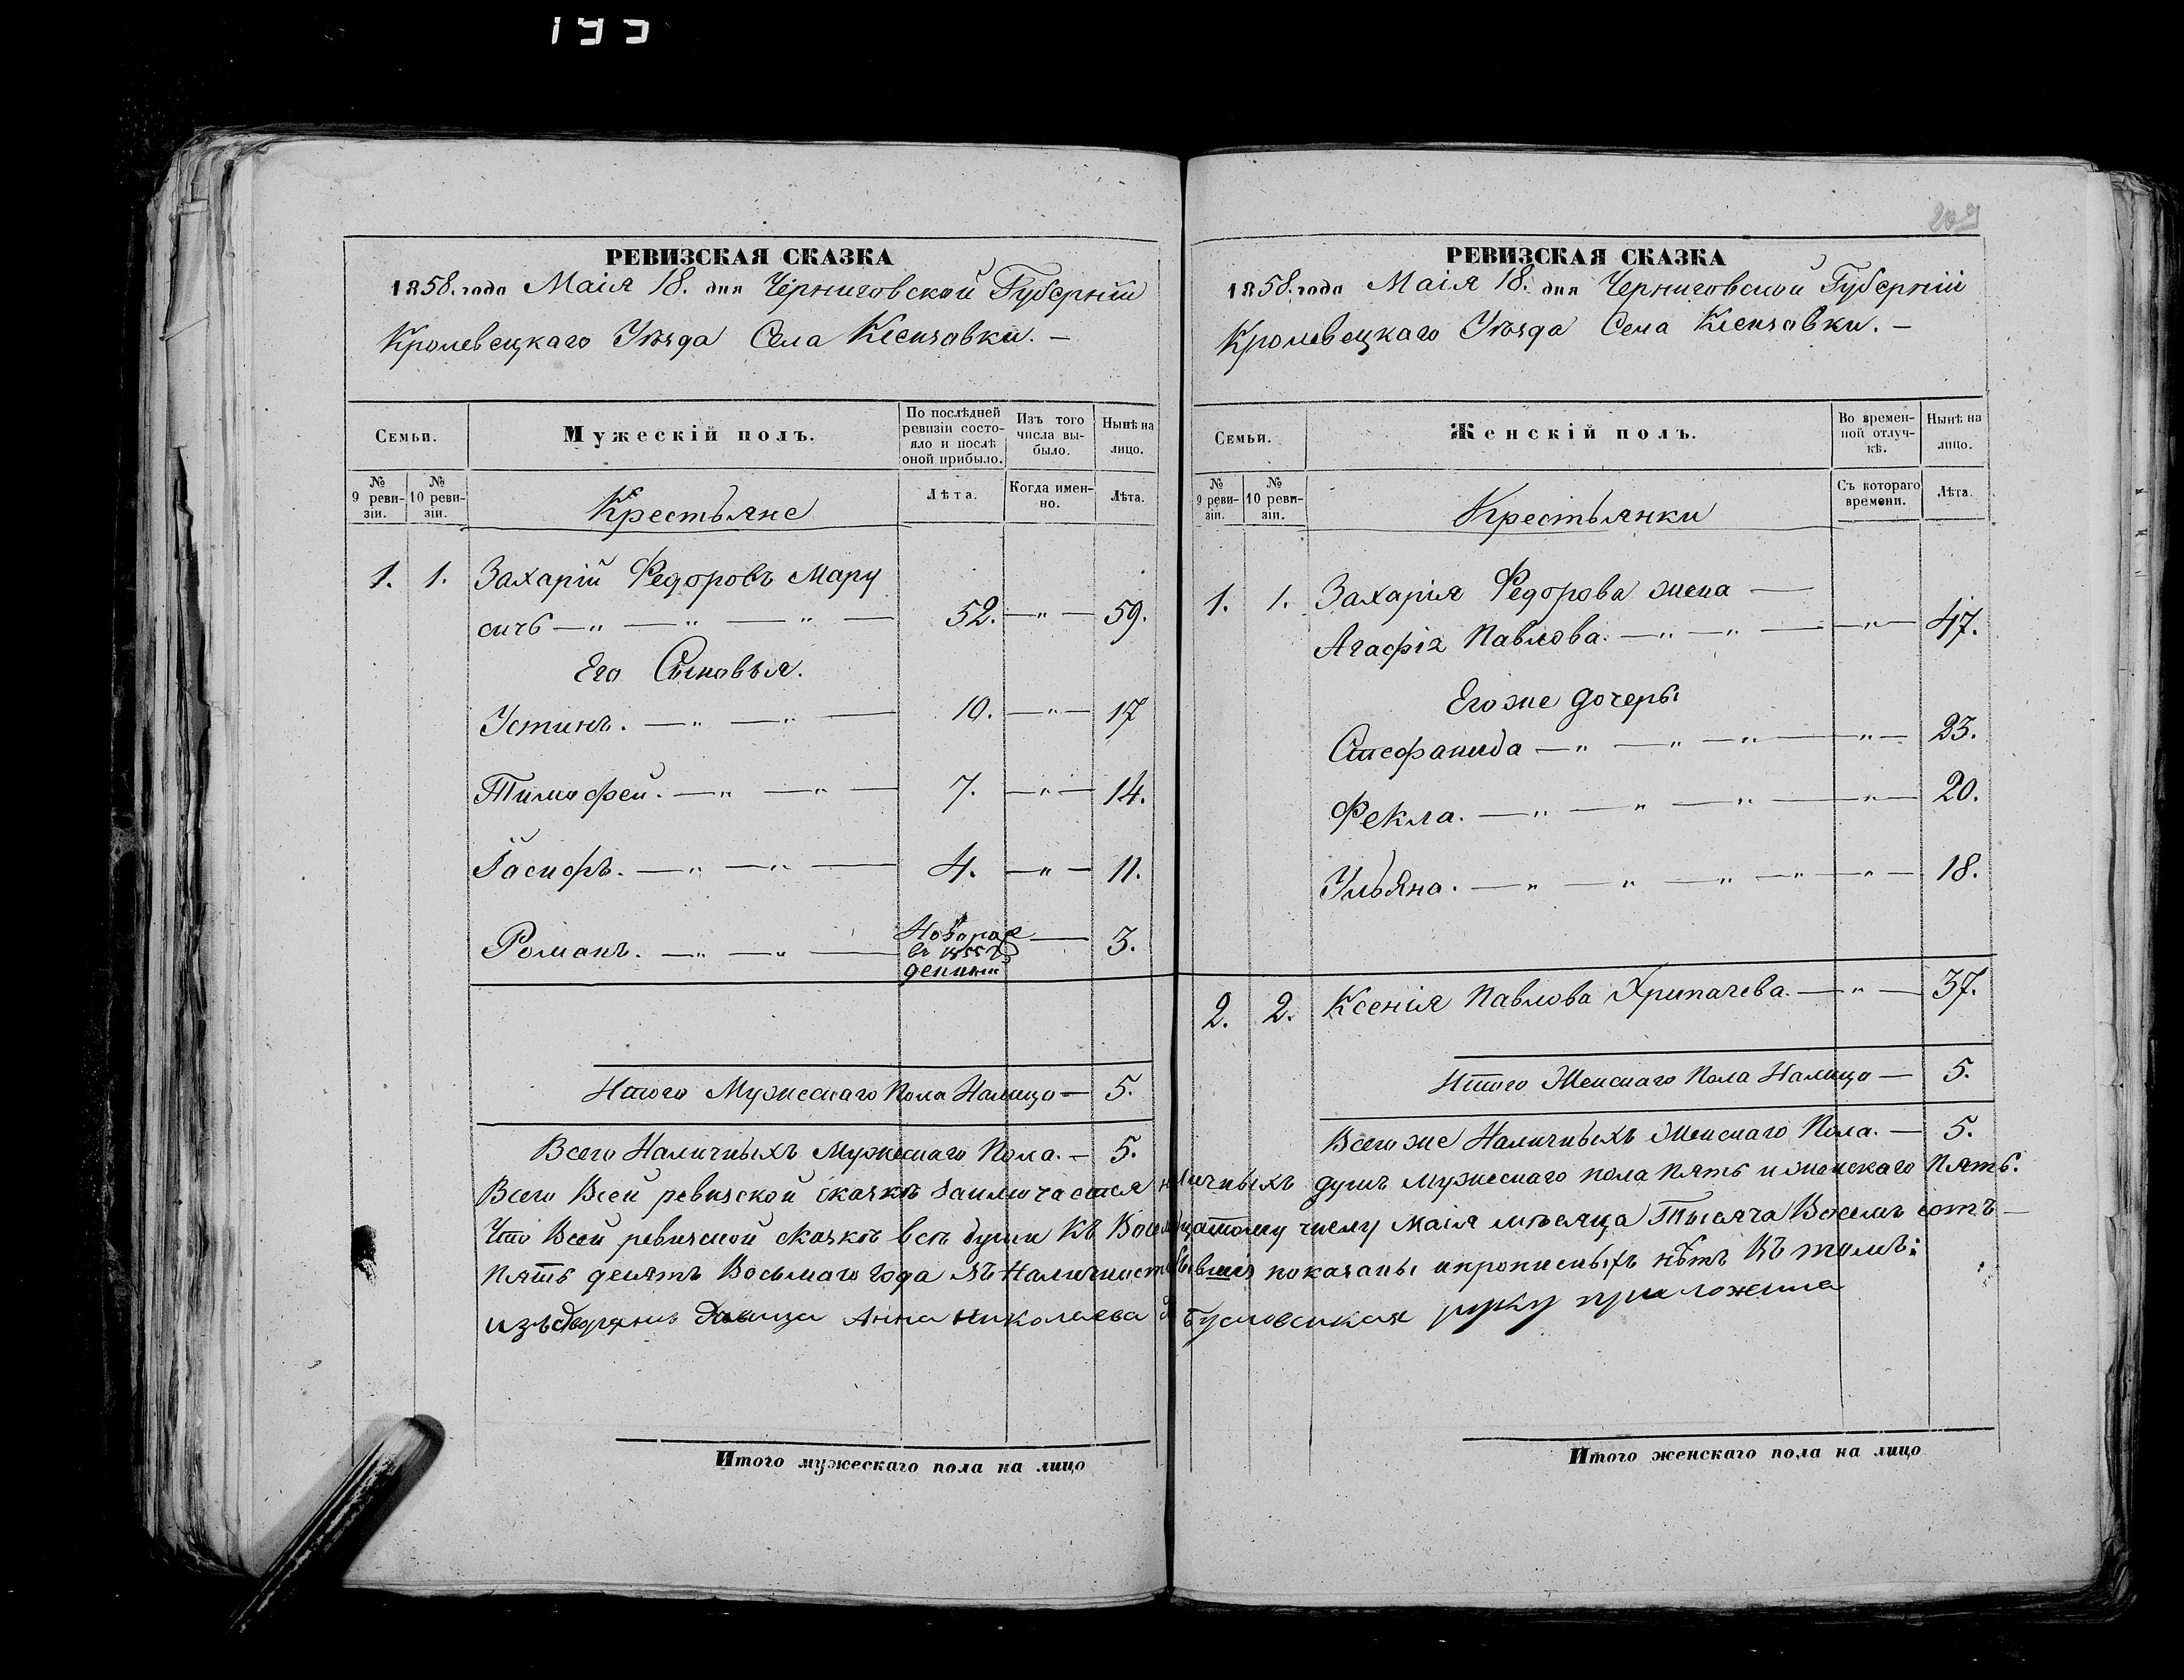 209
РЕВИЗСКАЯ СКАЗКА
1858. года Маія 18. дня Черниговской Губерніи
Кролевецкаго Уѣзда Села
Семьи.
Мужескій полъ.
По послѣдней ревизіи состояло и послѣ оной прибыло.
Изъ того числа выбыло.
Нынѣ на лицо.
№ 9 ревизіи.
№ 10 ревизіи.
Крестьяне
Лѣта.
Когда именно.
Лѣта.
1. 1. Захарій Федоровъ Мару
сичь — „ — „ — „ — 52. — „ — 59.
Его Сыновья.
Устинъ. — „ — „ — 10. — „ — 17
Тимофей. — „ — „ — 7. — „ — 14.
Іосифъ. — „ — „ — 4. — „ — 11.
Романъ. — „ — „ — Новорож
въ 1855 г.
денный — 3.
Итого Мужескаго Пола Налицо — 5.
Всего Наличныхъ Мужескаго Пола. — 5.
РЕВИЗСКАЯ СКАЗКА
1858. года Маія 18. дня Черниговской Губерніи
Кролевецкаго Уѣзда Села
Семьи.
Женскій полъ.
Во временной отлучкѣ.
Нынѣ на лицо.
№ 9 ревизіи.
№ 10 ревизіи.
Крестьянки
Съ котораго времени.
Лѣта.
1. 1. Захарія Федорова жена —
Агафія Павлова. — „ — „ — „ — 47.
Его же дочеры
Стефанида — „ — „ — „ — „ — 23.
Фекла. — „ — „ — „ — „ — 20.
Ульяна. — „ — „ — „ — „ — „ — 18.
2. 2. Ксенія Павлова — „ — 37.
Итого Женскаго Пола Налицо — 5.
Всего же Наличныхъ Женскаго Пола. — 5.
Всего Всей ревизской сказкѣ Заключается наличныхъ душъ мужескаго пола пять и женскаго Пять.
Что Всей ревизской сказкѣ всѣ души Къ числу Маія мѣсяца Тысяча Восемь сотъ —
Пять десятъ Восьмаго года показаны и прописныхъ нѣтъ Въ томъ:
изъ дворянъ девица Анна Николаева руку приложила
Итого мужескаго пола на лицо
Итого женскаго пола на лицо